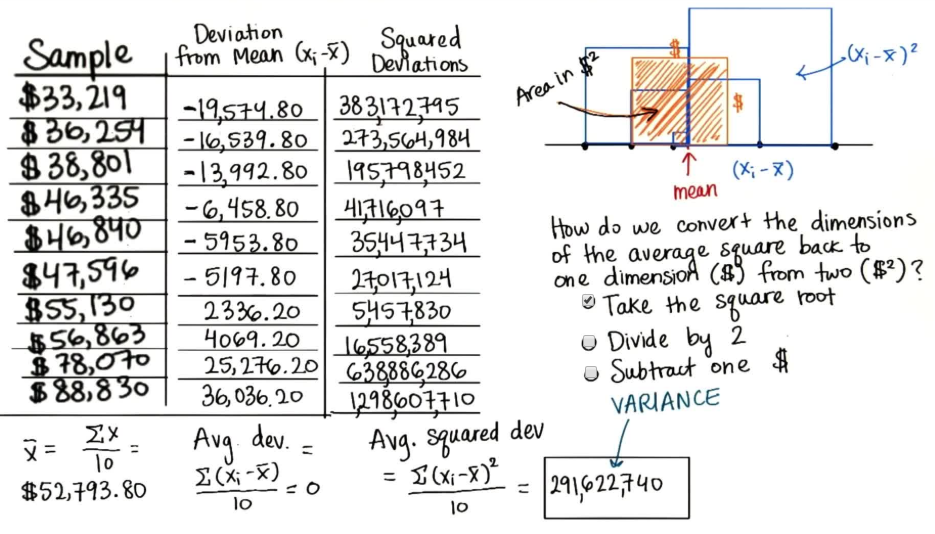 Sample
Deviation from Mean (xᵢ-x̄)
Squared Deviations
$33,219 -19,574.80 383,172,795
$36,254 -16,539.80 273,564,984
$38,801 -13,992.80 195,798,452
$46,335 -6,458.80 41,716,097
$46,840 -5953.80 35,447,734
$47,596 -5197.80 27,017,124
$55,130 2336.20 5,457,830
$56,863 4069.20 16,558,389
$78,070 25,276.20 638,886,286
$88,830 36,036.20 1,298,607,710
x̄ = Σx/10 = $52,793.80
Avg. dev. = Σ(xᵢ-x̄)/10 = 0
Avg. squared dev = Σ(xᵢ-x̄)²/10 = 291,622,740
Area in $²
$
$
(xᵢ-x̄)²
(xᵢ-x̄)
mean
How do we convert the dimensions
of the average square back to
one dimension ($) from two ($²)?
Take the square root
Divide by 2
Subtract one $
VARIANCE